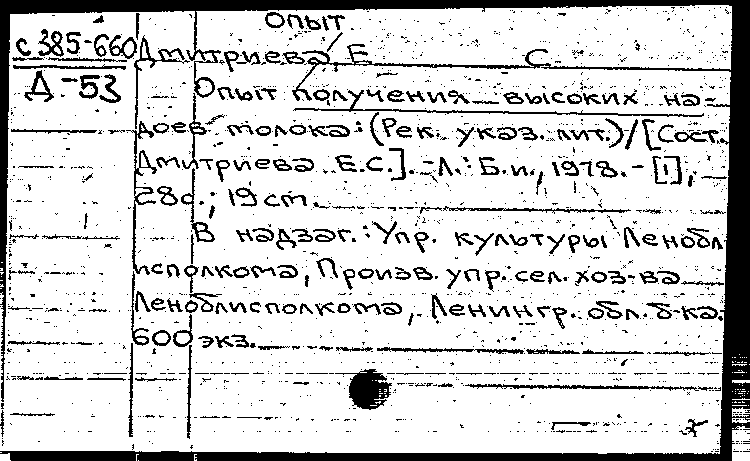 Опыт
с385-660 Дмитриева, Е С.
Д-53 Опыт получения высоких на-
доев молока: (Рек. указ. лит.)/[Сост.
Дмитриева Е.С.]. - Л.: Б.и., 1978. - [1],
28с.; 19 cm.
В надзаг.: Упр. культуры Ленобл
исполкома, Произв. упр. сел. хоз-ва
Леноблисполкома, Ленингр. обл. б-ка.
600 экз.